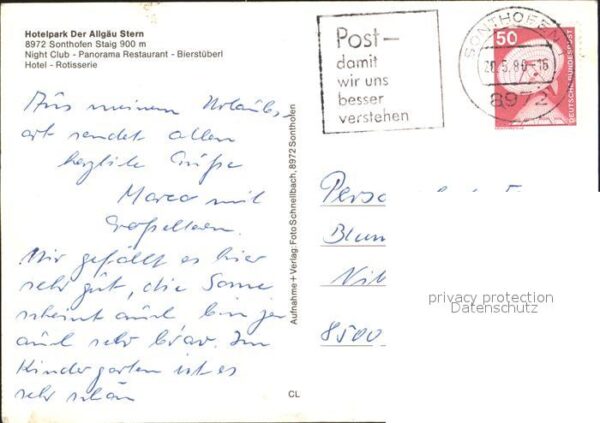 Hotelpark Der Allgäu Stern
8972 Sonthofen Staig 900 m
Night Club - Panorama Restaurant - Bierstüberl
Hotel - Rotisserie
Aus meinem Urlaubs
ort sendet allen
herzliche Grüße
Marco mit
Großeltern.
Mir gefällt es hier
sehr gut, die Sonne
scheint und bin ja
auch sehr brav. Im
Kindergarten ist es
sehr schön
Aufnahme + Verlag: Foto Schnellbach, 8972 Sonthofen
CL
Post-
damit
wir uns
besser
verstehen
SONTHOFEN 1
20.5.80-16
8972
50
DEUTSCHE BUNDESPOST
Perso
Blum
8500
privacy protection
Datenschutz